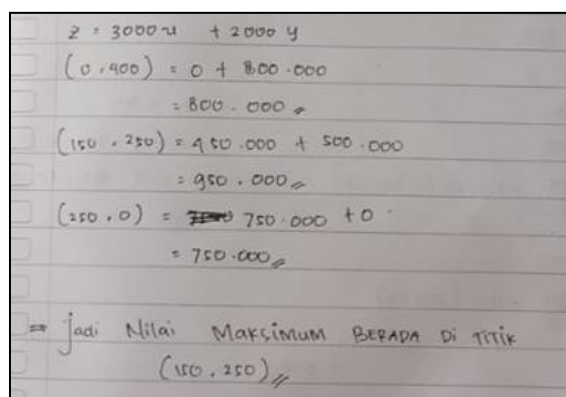 z = 3000x + 2000y
(0,400) = 0 + 800.000
= 800.000 //
(150, 250) = 450.000 + 500.000
= 950.000 //
(250,0) = 750.000 + 0
= 750.000 //
⇒ jadi Nilai MAKSIMUM BERADA Di TiTiK
(150, 250) //